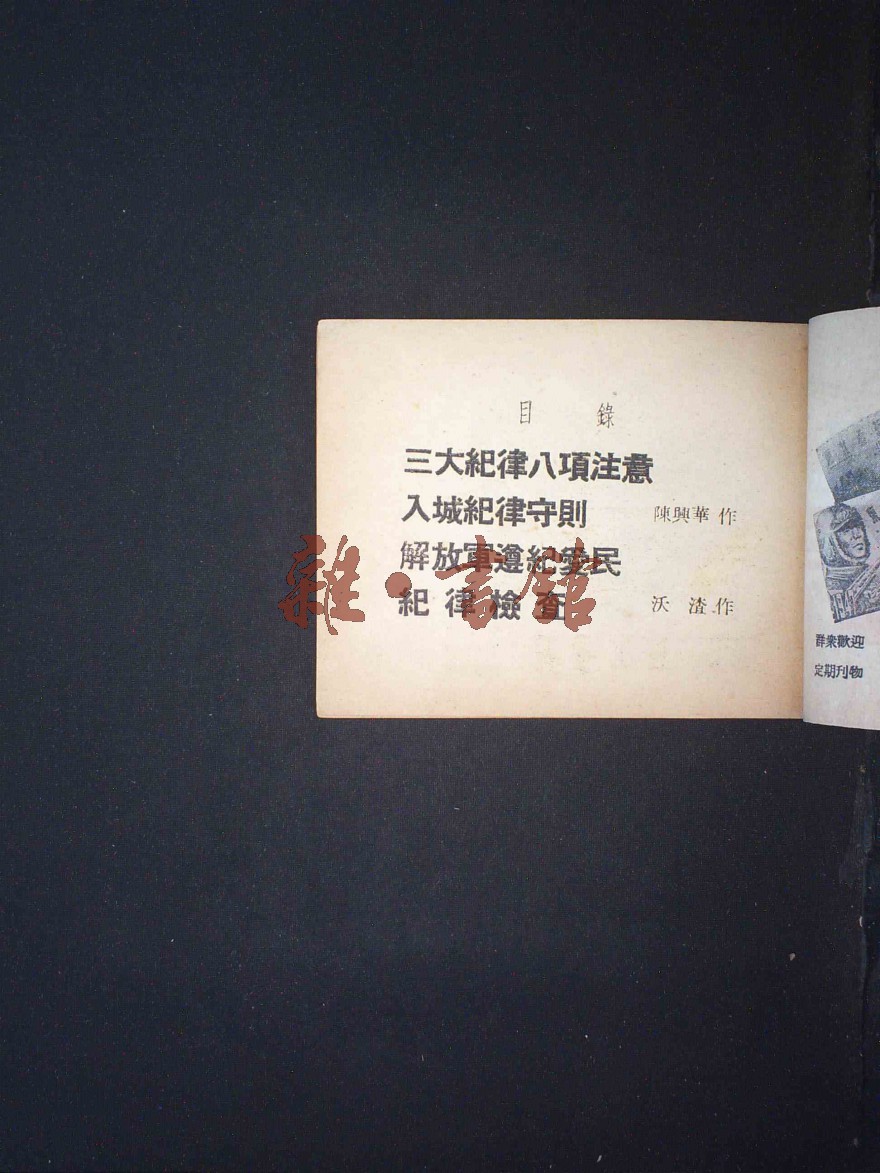 目 錄
三大紀律八項注意
入城紀律守則 陳興華 作
解放軍遵紀愛民
紀律檢查 沃渣 作
雜·書館
群衆歡迎
定期刊物